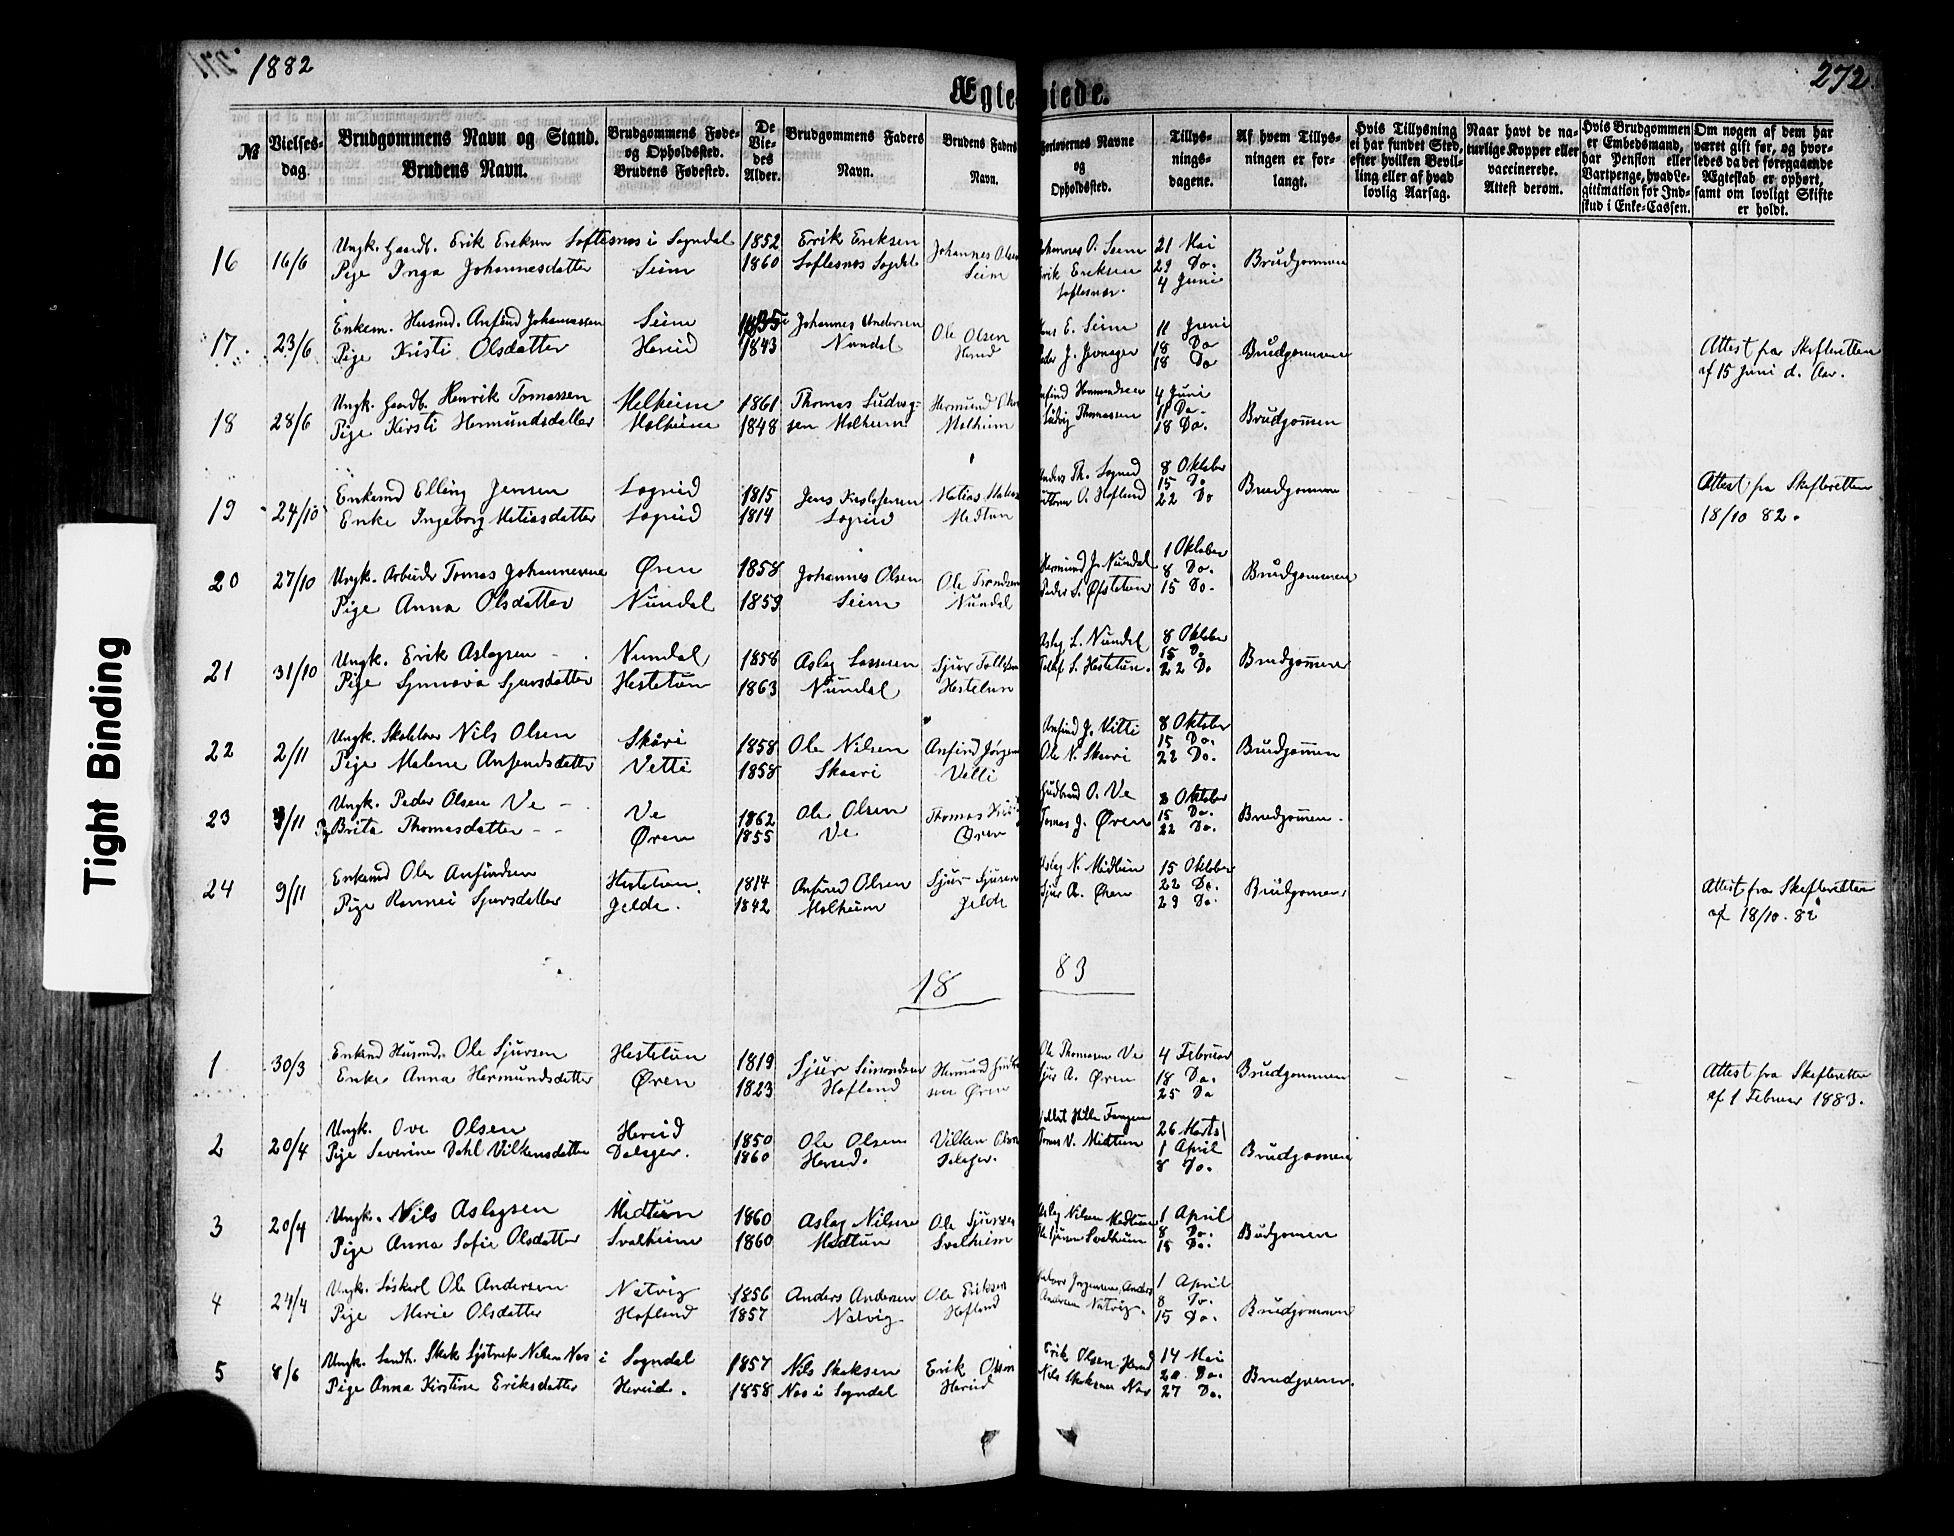 1882
272.
Ægte
viede.
№
Vielses-
dag.
Brudgommens Navn og Stand.
Brudens Navn.
Brudgommens Føde-
og Opholdssted.
Brudens Fødested.
De
Vie-
des
Alder.
Brudgommens Faders
Navn.
Brudens Faders
Navn.
Forlovernes Navne
og
Opholdssted.
Tillys-
nings-
dagene.
Af hvem Tillys-
ningen er for-
langt.
Hvis Tillysning
ei har fundet Sted,
efter hvilken Bevil-
ling eller af hvad
lovlig Aarsag.
Naar havt de na-
turlige Kopper eller
vaccinerede.
Attest derom.
Hvis Brudgommen
er Embedsmand,
har Pension eller
Vartpenge, hvad Le-
gitimation for Ind-
skud i Enke-Cassen.
Om nogen af dem har
været gift før, og hvor-
ledes da det foregaaende
Ægteskab er ophørt,
samt om lovligt Skifte
er holdt.
16 16/6 Ungk. Gaardb. Erik Eriksen Loftesnes i Sogndal 1852 Erik Eriksen Johannes Olsen Johannes O. Seim 21 Mai Brudgommen
Pige Inga Johannesdatter Seim 1860 Loftesnes Sogdal Seim Erik Eriksen 29 Do.
Loftesnes. 4 Juni
17 23/6 Enkem. Husmd. Anfind Johannessen Seim Johannes Andersen Ole Olsen E. Seim 11 Juni Brudgommen
Pige Kristi Olsdatter Hereid 1843 Nundal Hereid Peder J. 18 Do
18 Do
Attest fra Skifteretten
af 15 Juni d. Aar.
18 28/6 Ungk. Gaardb. Henrik Tomassen Melheim 1861 Thomas Ludvig- Hermund Anfind Hermundsen 4 Juni Brudgommen
Pige Kirsti Hermundsdatter Molheim 1848 sen Molheim Molheim Ludvig Thomassen 11 Do.
18 Do.
19 24/10 Enkemd Elling Jensen Sogned 1815 Jens Matias Anders Th. Sogned 8 Oktober Brudgommen
Enke Ingeborg Matiasdatter Sogned 1814 Sogned Midtun O. Hofland 15 Do
22 Do
Attest fra Skifteretten
18/10 82.
20 27/10 Ungk. Arbeider Tomas Johannesen Øren 1858 Johannes Olsen Ole Trondsen Hermund J. Nundal 1 Oktober Brudgommen
Pige Anna Olsdatter Nundal 1859 Seim Nundal Peder S. 8 Do.
15 Do.
21 31/10 Ungk. Erik Aslagsen Nundal 1858 Aslag Lassesen Sjur Tollefsen Aslag L. Nundal 8 Oktober Brudgommen
Pige Synneva Sjursdatter Hestetun 1863 Nundal Hestetun S. Hestetun. 15 Do
22 Do
22 2/11 Ungk. Skolelær Nils Olsen Skåri 1858 Ole Nilsen Anfind Jørgen Anfind J. Vitti 8 Oktober Brudgommen
Pige Malene Anfindsdatter Vetti 1858 Skaari Vetti Ole N. Skaari 15 Do.
22 Do.
23 9/11 Ungk. Peder Olsen Ve Ve 1862 Ole Olsen Thomas Gudbrand O. Ve 8 Oktober Brudgommen.
Pg Brita Thomasdatter Øren 1855 Ve Øren Tomas J. Øren 15 Do.
22 Do.
24 9/11 Enkemd Ole Anfindsen Hestetun. 1814 Anfind Olsen Sjur Sjursen Aslag N. Midtun 15 Oktober Brudgommen
Pige Rannei Sjursdatter Gjelde. 1842 Molheim Gjelde Sjur A. Øren 22 Do.
29 Do.
Attest fra Skifteretten
af 18/10. 82
18 83
1 30/3 Enkemd Husmd. Ole Sjursen Hestetun 1819 Sjur Simondsen Hermund Ole Thomasen Ve 4 Februar Brudgommen
Enke Anna Hermundsdatter Øren 1823 Hofland sen Øren Sjur A. Øren 18 Do.
25 Do
Attest fra Skifteretten
af 1 Februar 1883.
2 20/4 Ungk. Ove Olsen Hereid 1850 Ole Olsen Vilken Olsen 26 Marts Brudgommen
Pige Severine Dahl Vilkensdatter Dalsger. 1860 Hereid. Tomas V. Midtun 1 April
8 Do.
3 20/4 Ungk. Nils Aslagsen Midtun 1860 Aslag Nilsen Ole Sjursen Aslag Nilsen Midtun 1 April Brudgommen
Pige Anna Sofie Olsdatter Svalheim 1860 Midtun Svalheim Ole Sjursen Svalheim 8 Do.
15 Do.
4 24/4 Ungk. Løskarl Ole Andersen Natvig 1856 Anders Andersen Ole Eriksen Jørgensen, Anders 1 April Brudgommen
Pige Marie Olsdatter Hofland 1857 Natvig Hofland Andersen Natvig. 8 Do.
15 Do.
5 8/6 Ungk. Landh. Skak Nilsen Nes i Sogndal 1857 Nils Skaksen Erik Olsen Erik Olsen Hereid 14 Mai Brudgommen.
Pige Anna Kirstine Eriksdatter Hereid. 1858 Nes i Sogndal Hereid Nils Skaksen Nes 20 Do.
27 Do.
Tight Binding